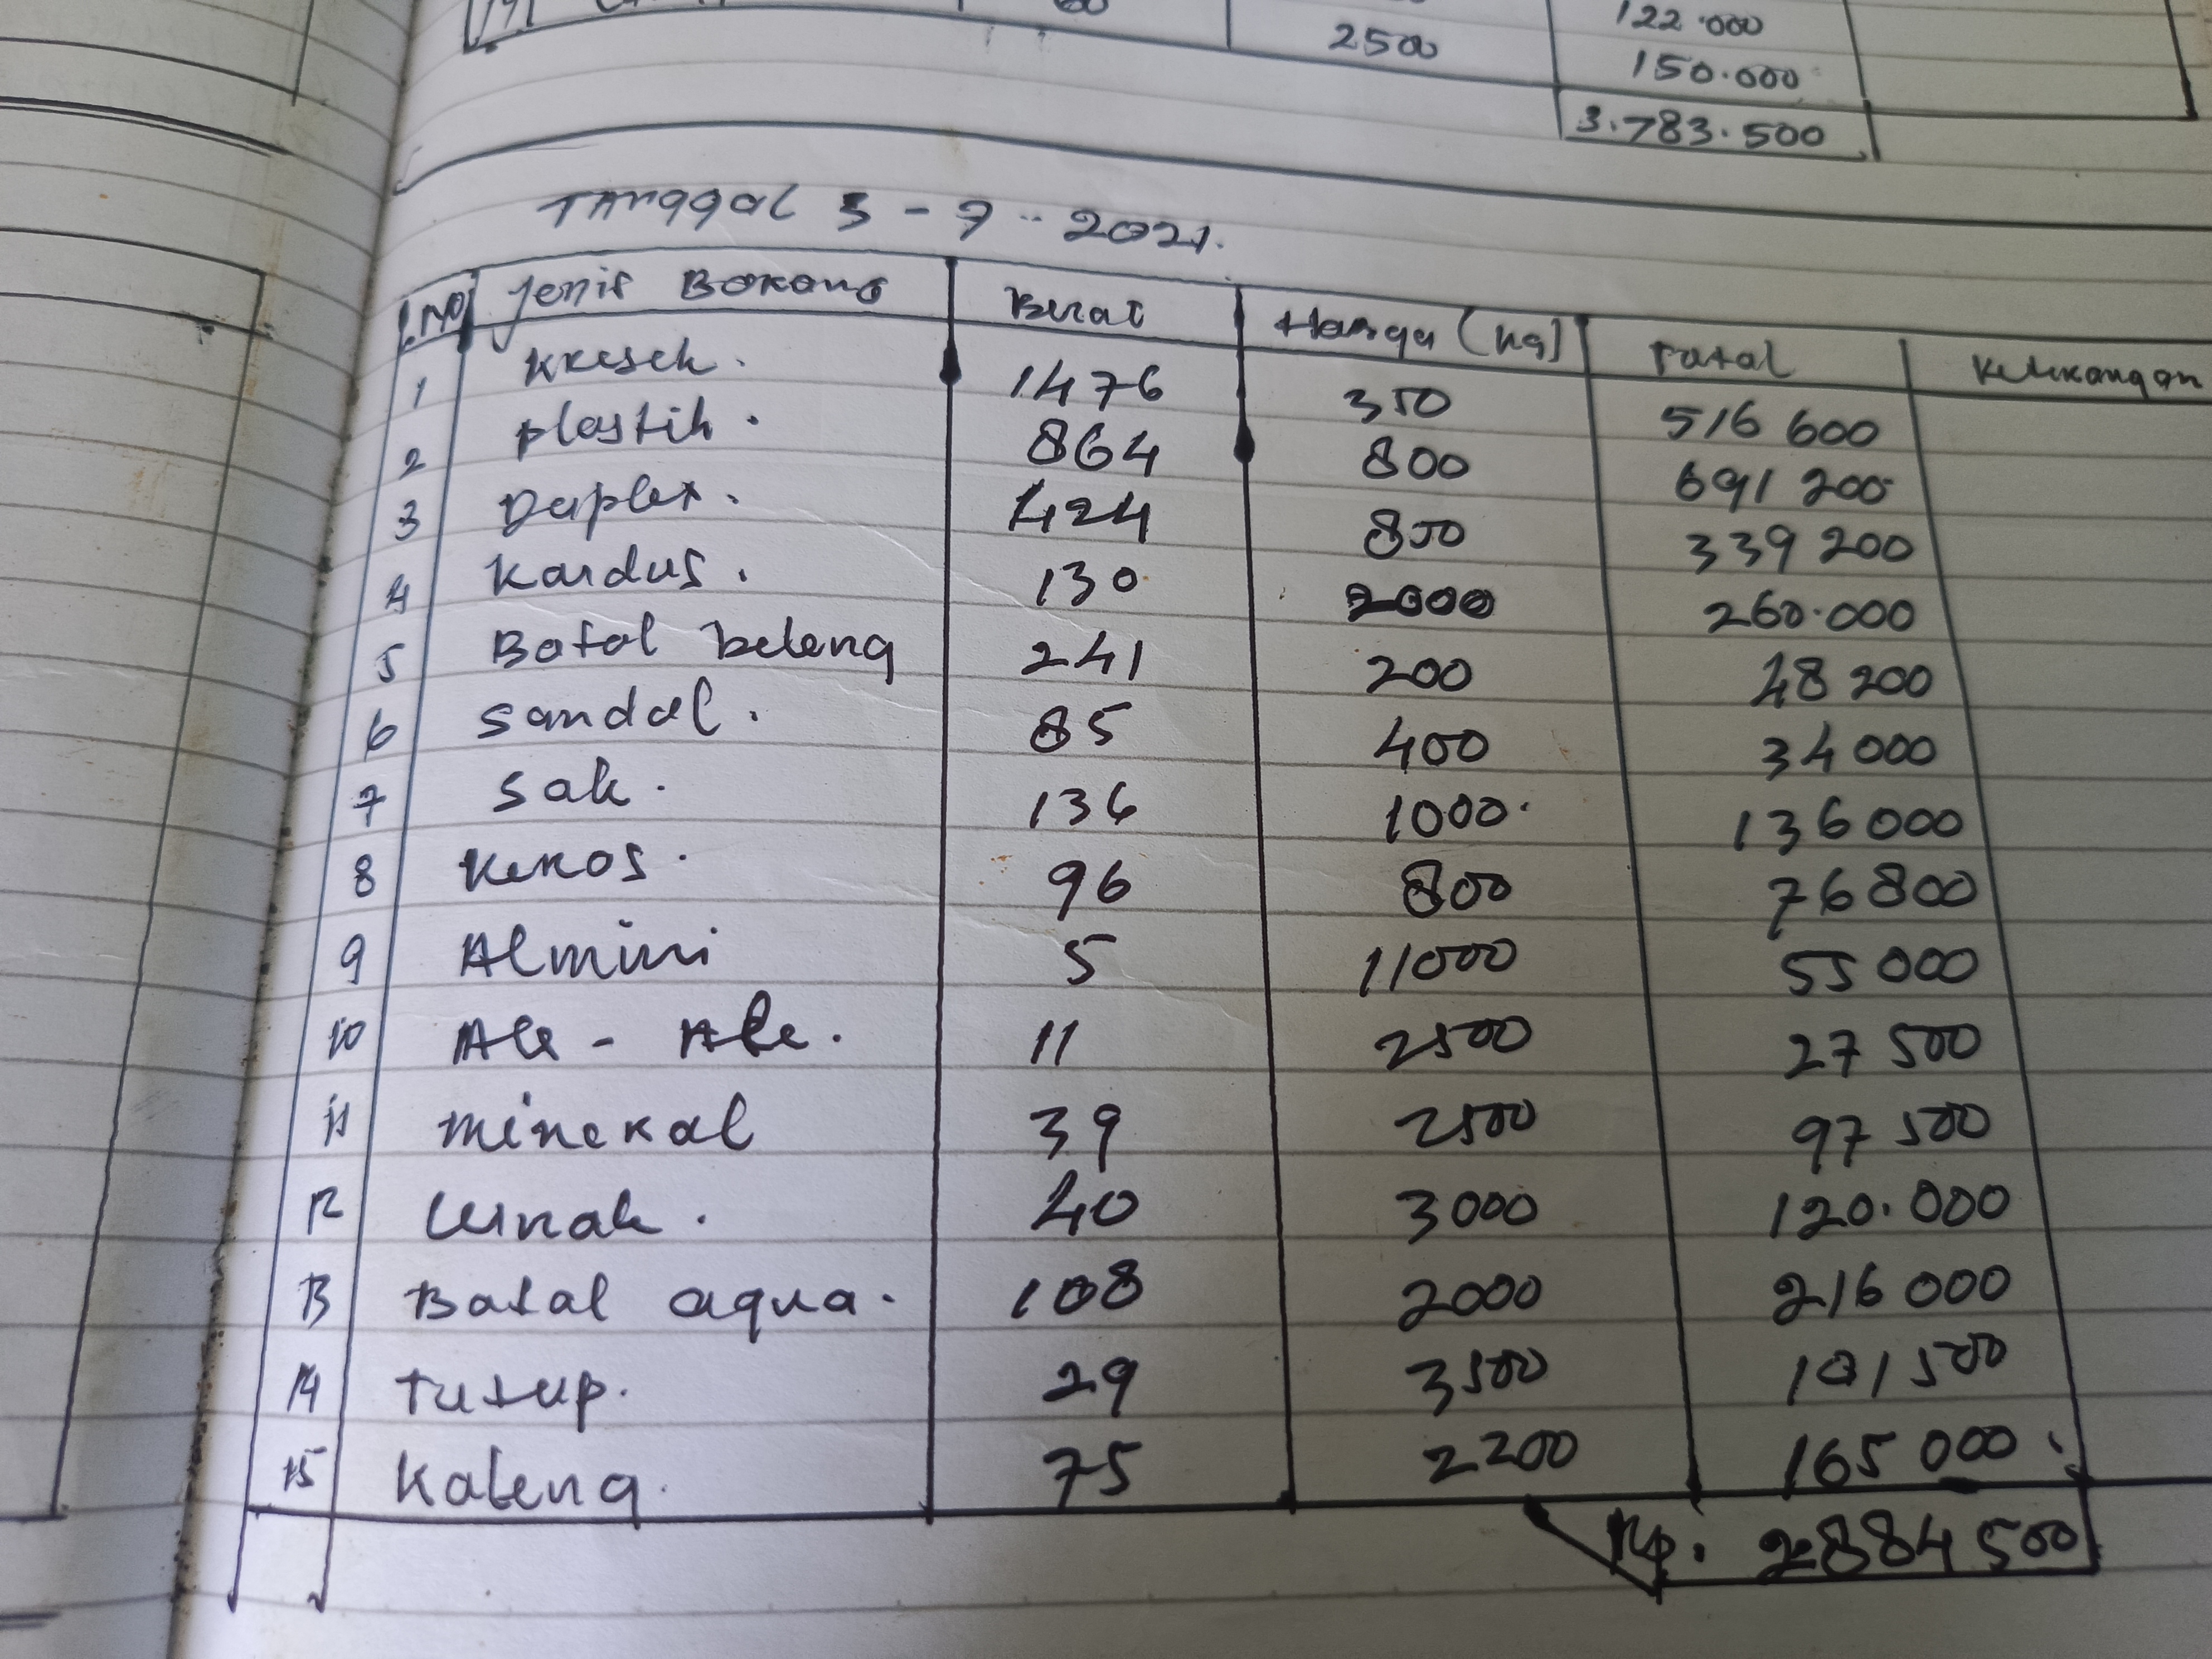 2500
122.000
150.000
3.783.500
Tanggal 3 - 7 - 2021.
NO Jenis Borong Berat Harga (kg) Total Keterangan
1 Kresek. 1476 350 516 600
2 plastik. 864 800 691 200
3 Duplex. 424 800 339 200
4 Kardus. 130 2000 260.000
5 Botol beleng 241 200 48 200
6 Sandal. 85 400 34 000
7 Sak. 136 1000. 136 000
8 Keros. 96 800 76 800
9 Almini 5 11000 55 000
10 Ale - Ale. 11 2500 27 500
11 mineral 39 2500 97 500
12 Lunak. 40 3000 120.000
13 Botol aqua. 108 2000 216 000
14 Tutup. 29 3500 101 500
15 Kaleng. 75 2200 165 000
Rp. 2884 500